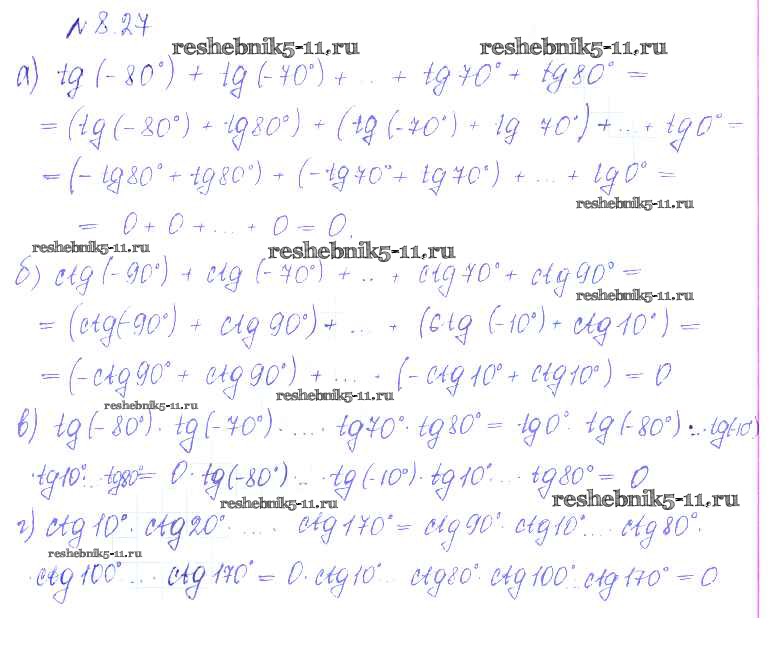 № 8.27
reshebnik5-11.ru reshebnik5-11.ru
а) tg (-80°) + tg (-70°) + ... + tg 70° + tg 80° =
= (tg (-80°) + tg 80°) + (tg (-70°) + tg 70°) + ... + tg 0° =
= (- tg 80° + tg 80°) + (- tg 70° + tg 70°) + ... + tg 0° =
reshebnik5-11.ru
= 0 + 0 + ... + 0 = 0.
reshebnik5-11.ru reshebnik5-11.ru
б) ctg (-90°) + ctg (-70°) + .. + ctg 70° + ctg 90° =
reshebnik5-11.ru
= (ctg(-90°) + ctg 90°) + ... + (ctg (-10°) + ctg 10°) =
= (-ctg 90° + ctg 90°) + ... · (-ctg 10° + ctg 10°) = 0
reshebnik5-11.ru
reshebnik5-11.ru
в) tg (-80°) · tg (-70°) · ... · tg 70° · tg 80° = tg 0° · tg (-80°) ·... tg(-10°)
· tg 10° ... tg 80° = 0 · tg (-80°) ... · tg (-10°) · tg 10° ... tg 80° = 0
reshebnik5-11.ru reshebnik5-11.ru
г) ctg 10° · ctg 20° · ... · ctg 170° = ctg 90° · ctg 10° ... ctg 80° ·
reshebnik5-11.ru
· ctg 100° ... ctg 170° = 0 · ctg 10° ... ctg 80° · ctg 100° ... ctg 170° = 0